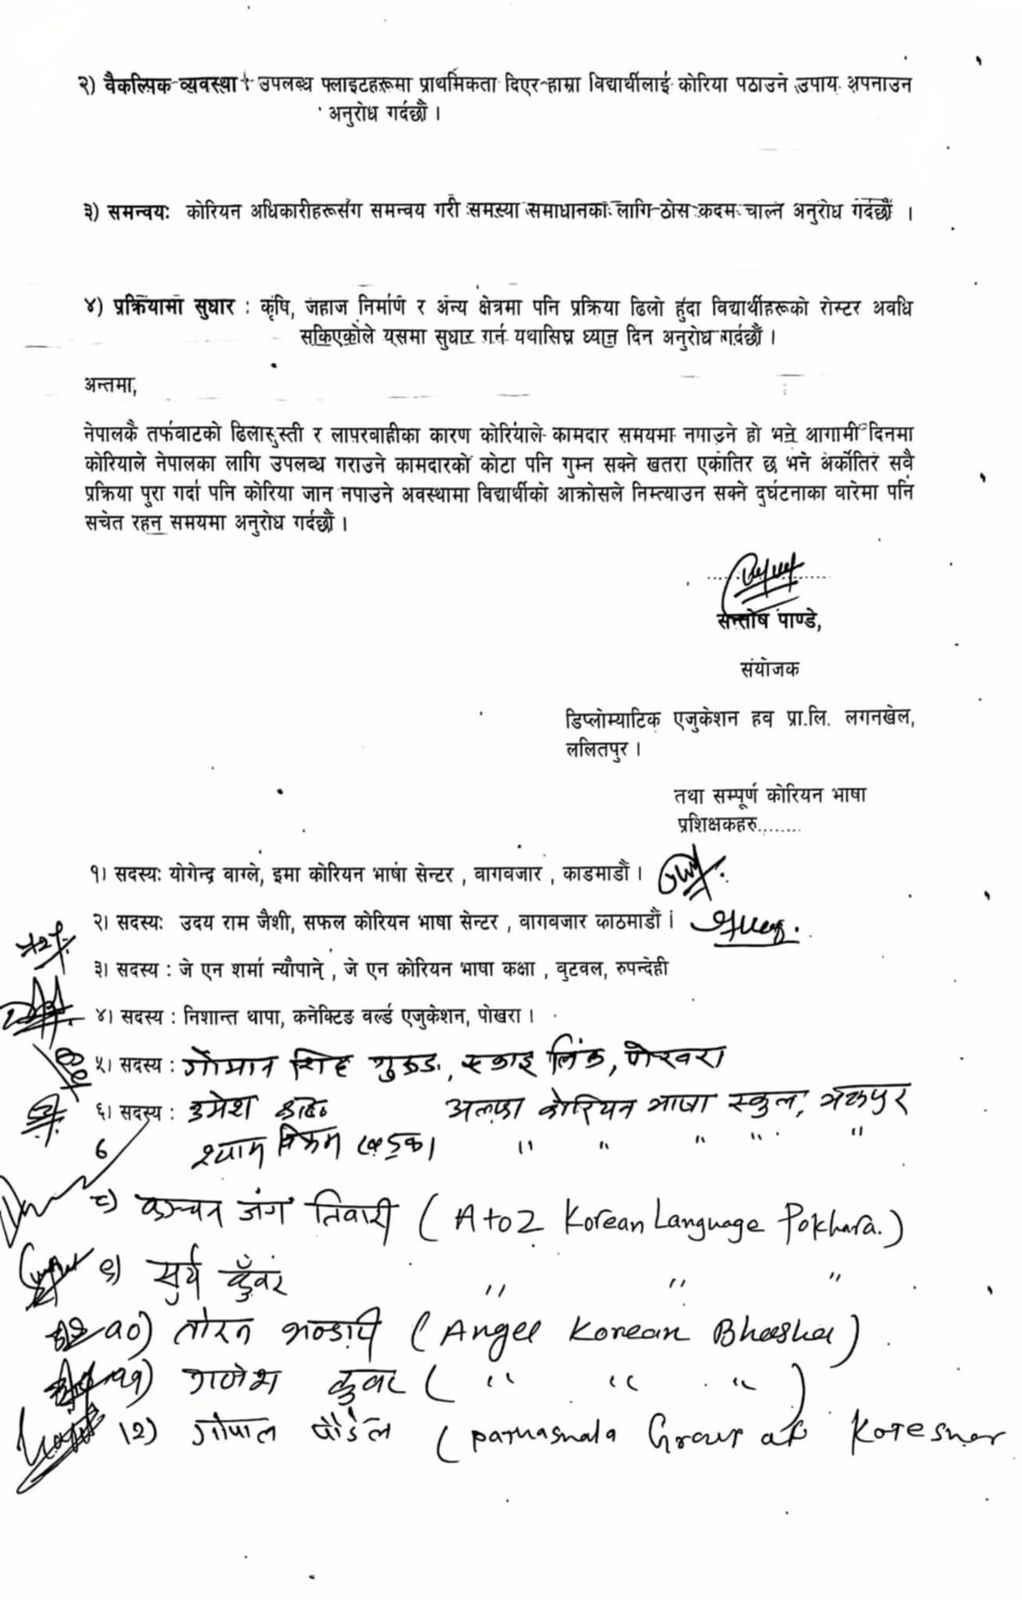 २) वैकल्पिक व्यवस्था : उपलब्ध फ्लाइटहरूमा प्राथमिकता दिएर हाम्रा विद्यार्थीलाई कोरिया पठाउने उपाय अपनाउन
अनुरोध गर्दछौं ।
३) समन्वय: कोरियन अधिकारीहरूसंग समन्वय गरी समस्या समाधानका लागि ठोस कदम चाल्न अनुरोध गर्दछौं ।
४) प्रक्रियामा सुधार : कृषि, जहाज निर्माण र अन्य क्षेत्रमा पनि प्रक्रिया ढिलो हुंदा विद्यार्थीहरूको रोस्टर अवधि
सकिएकोले यसमा सुधार गर्न यथासिघ्र ध्यान दिन अनुरोध गर्दछौं ।
अन्तमा,
नेपालकै तर्फबाटको ढिलासुस्ती र लापरवाहीका कारण कोरियाले कामदार समयमा नपाउने हो भने आगामी दिनमा
कोरियाले नेपालका लागि उपलब्ध गराउने कामदारको कोटा पनि गुम्न सक्ने खतरा एकातिर छ भने अर्कोतिर सवै
प्रक्रिया पुरा गर्दा पनि कोरिया जान नपाउने अवस्थामा विद्यार्थीको आक्रोसले निम्त्याउन सक्ने दुर्घटनाका वारेमा पनि
सचेत रहन समयमा अनुरोध गर्दछौं ।
सन्तोष पाण्डे,
संयोजक
डिप्लोम्याटिक एजुकेशन हव प्रा.लि. लगनखेल,
ललितपुर ।
तथा सम्पूर्ण कोरियन भाषा
प्रशिक्षकहरु........
१) सदस्य: योगेन्द्र वाग्ले, इमा कोरियन भाषा सेन्टर , वागवजार , काडमाडौं ।
२) सदस्य: उदय राम जैशी, सफल कोरियन भाषा सेन्टर , वागवजार काठमाडौं ।
३) सदस्य : जे एन शर्मा न्यौपाने , जे एन कोरियन भाषा कक्षा , वुटवल, रुपन्देही
४) सदस्य : निशान्त थापा, कनेक्टिङ वर्ल्ड एजुकेशन, पोखरा ।
५) सदस्य : गुरुङ, स्काइ लिंक, पोखरा
६) सदस्य : उमेश अल्फा कोरियन भाषा स्कुल,
श्याम विक्रम " " " " "
८) कञ्चन जंग तिवारी ( A to Z Korean Language Pokhara.)
९) सुर्य कुँवर " " "
१०) तोरन भण्डारी ( Angel Korean Bhasha )
११) गणेश कुवर ( " " " )
१२) गोपाल पौडेल ( Group of